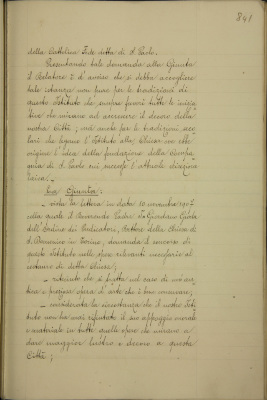 841
della Cattolica Fede detta di S. Paolo.
Presentando tale domanda alla Giunta
il Relatore è d'avviso che si debba accogliere
tale istanza non pure per le tradizioni di
questo Istituto che sempre favorì tutte le inizia
tive che mirano ad accrescere il decoro della
nostra Città; ma anche per le tradizioni seco
lari che legano l'Istituto alla Chiesa ove ebbe
origine l'idea della fondazione della Compa
gnia di S. Paolo cui successe l'attuale Direzione
La Giunta:
- vista la lettera in data 10 novembre 1907
colla quale il Reverendo Padre Giordano
dell'Ordine dei Predicatori, Rettore della Chiesa di
S. Domenico in Torino, domanda il concorso di
questo Istituto nelle spese rilevanti necessarie al
restauro di detta Chiesa;
- ritenuto che si tratta nel caso di un'an
tica e preziosa opera d'arte che è bene conservare;
- considerata la circostanza che il nostro Isti
tuto non ha mai rifiutato il suo appoggio morale
e materiale in tutte quelle opere che mirano a
dare maggior lustro e decoro a questa
Città;